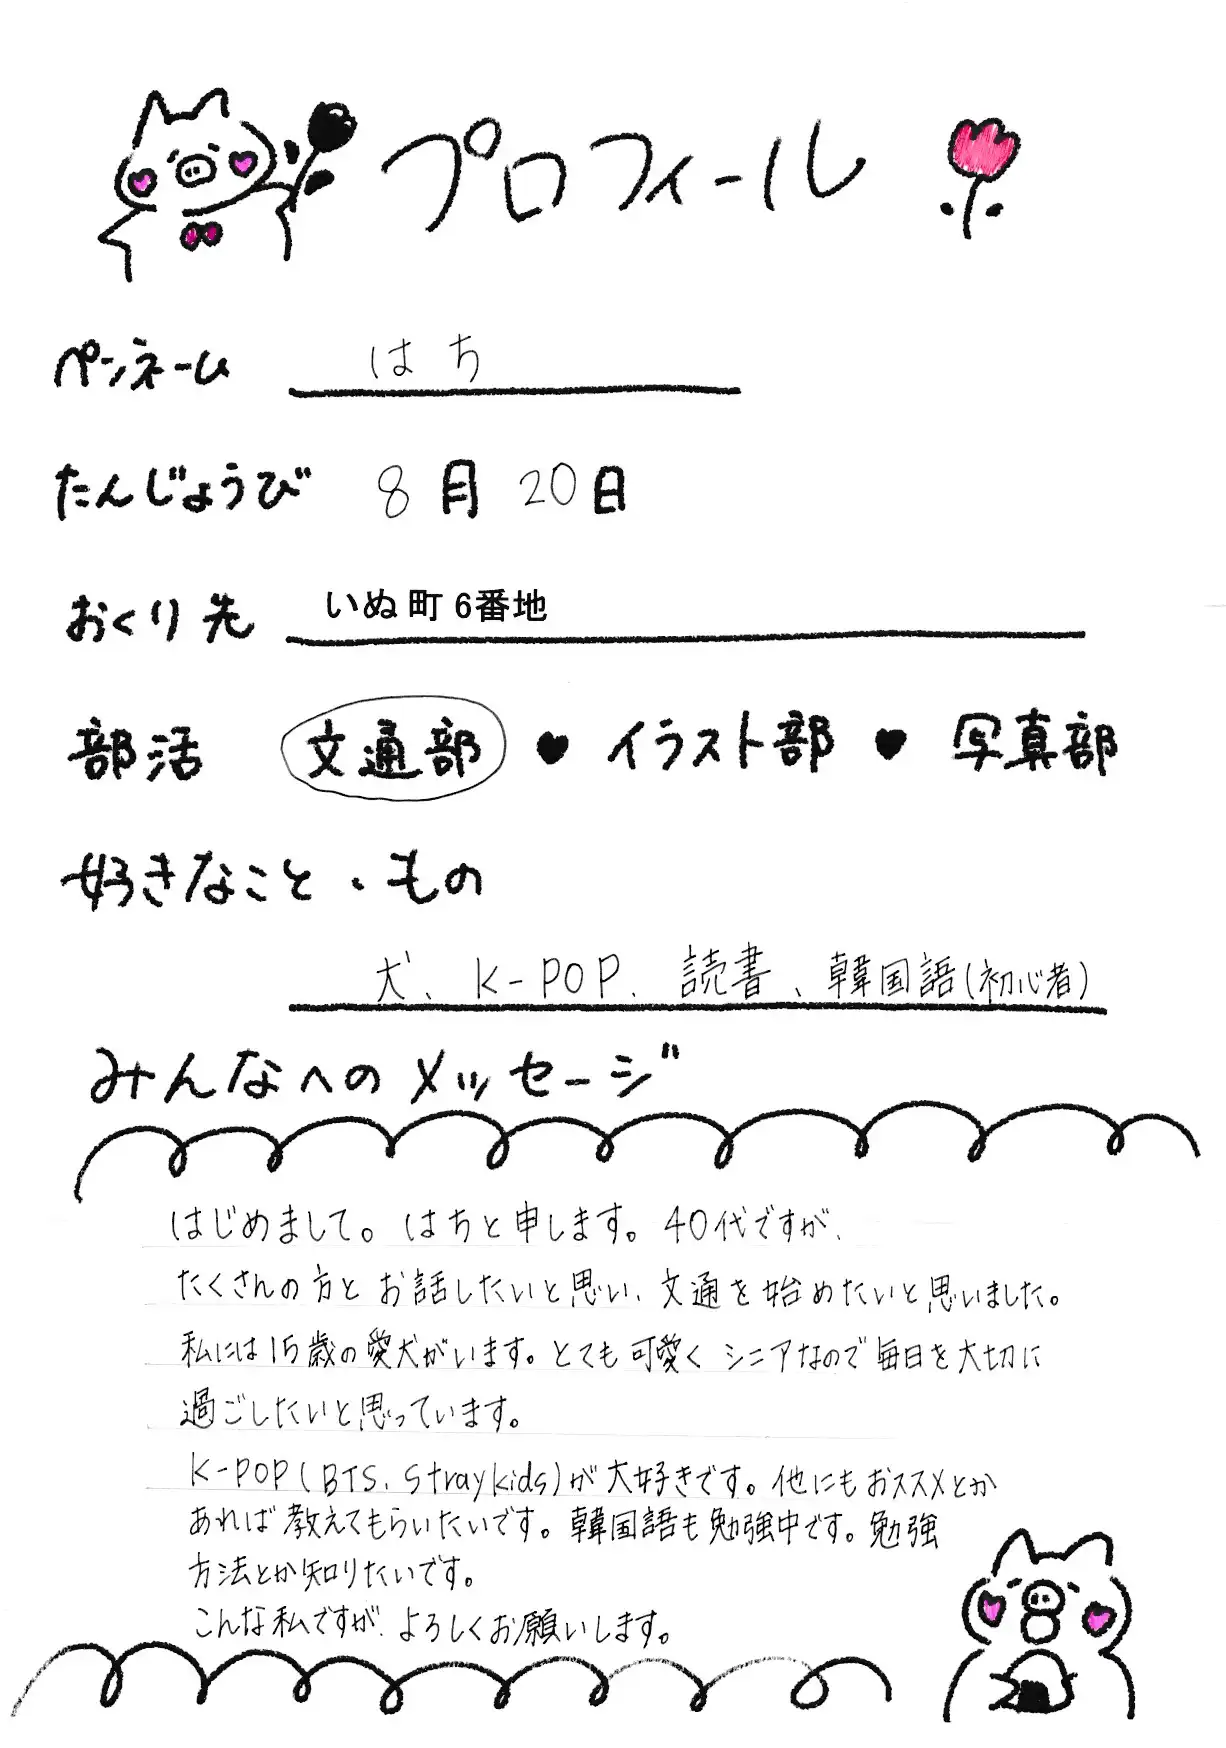 プロフィール
ペンネーム はち
たんじょうび 8月20日
おくり先 いぬ町6番地
部活 文通部 ♥ イラスト部 ♥ 写真部
好きなこと・もの
犬、K-POP、読書、韓国語(初心者)
みんなへのメッセージ
はじめまして。はちと申します。40代ですが、
たくさんの方とお話したいと思い、文通を始めたいと思いました。
私には15歳の愛犬がいます。とても可愛くシニアなので毎日を大切に
過ごしたいと思っています。
K-POP(BTS、Straykids)が大好きです。他にもおススメとか
あれば教えてもらいたいです。韓国語も勉強中です。勉強
方法とか知りたいです。
こんな私ですが、よろしくお願いします。